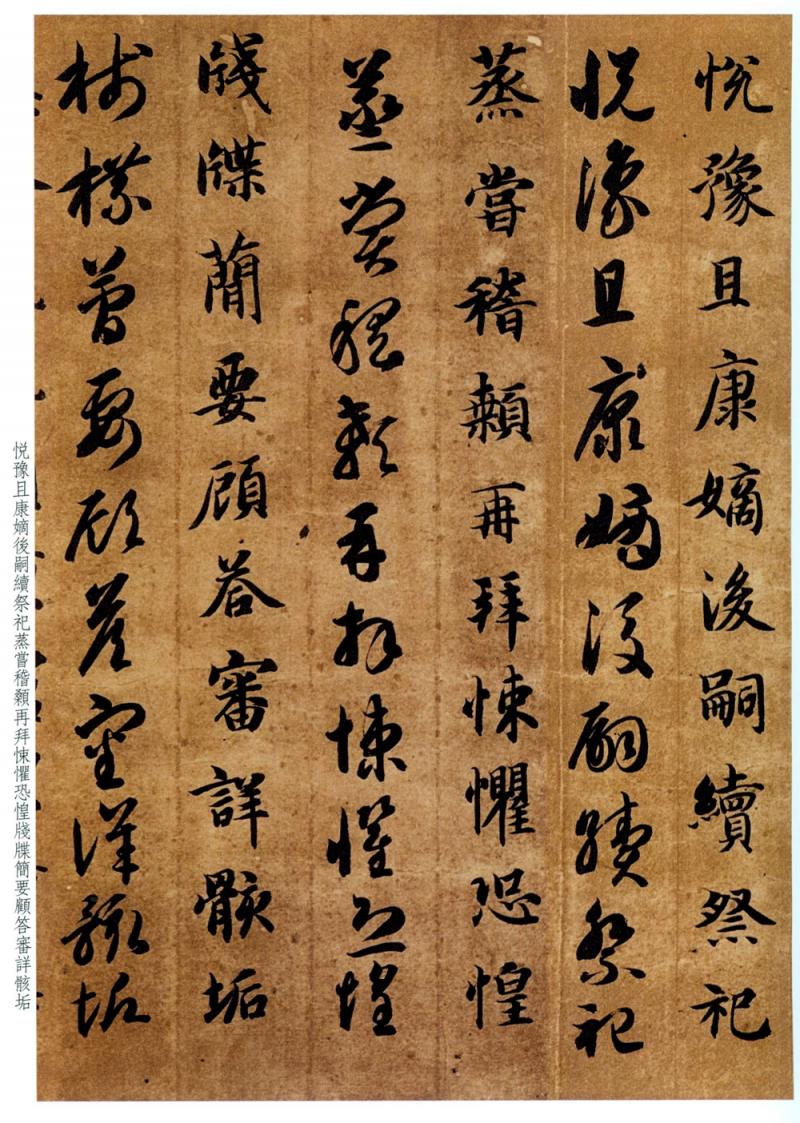 悅豫且康嫡後嗣續祭祀
悅豫且康嫡後嗣續祭祀
蒸嘗稽顙再拜悚懼恐惶
蒸嘗稽顙再拜悚懼恐惶
牋牒簡要顧答審詳骸垢
牋牒簡要顧答審詳骸垢
悅豫且康嫡後嗣續祭祀蒸嘗稽顙再拜悚懼恐惶牋牒簡要顧答審詳骸垢